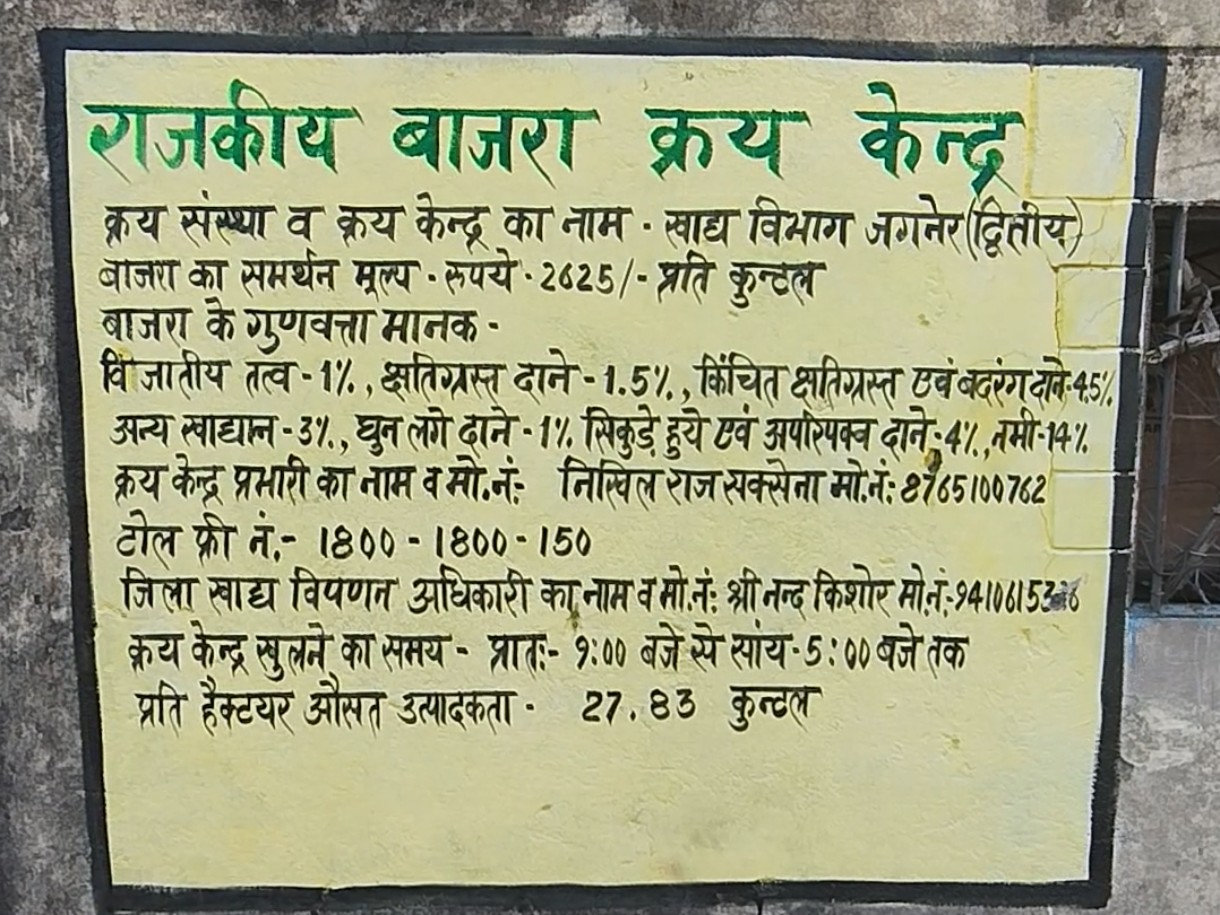 राजकीय बाजरा क्रय केन्द्र
क्रय संस्था व क्रय केन्द्र का नाम - खाद्य विभाग जगनेर (द्वितीय)
बाजरा का समर्थन मूल्य - रुपये - 2625/- प्रति कुन्टल
बाजरा के गुणवत्ता मानक -
विजातीय तत्व - 1%, क्षतिग्रस्त दाने - 1.5%, किंचित क्षतिग्रस्त एवं बदरंग दाने-4.5%
अन्य खाद्यान - 3%, घुन लगे दाने - 1% सिकुड़े हुये एवं अपरिपक्व दाने-4%, नमी-14%
क्रय केन्द्र प्रभारी का नाम व मो.नं:- निखिल राज सक्सेना मो.नं: 8765100762
टोल फ्री नं.- 1800 - 1800 - 150
जिला खाद्य विपणन अधिकारी का नाम व मो.नं: श्री नन्द किशोर मो.नं:-
क्रय केन्द्र खुलने का समय - प्रातः- 9:00 बजे से सांय - 5:00 बजे तक
प्रति हैक्टयर औसत उत्पादकता - 27.83 कुन्टल